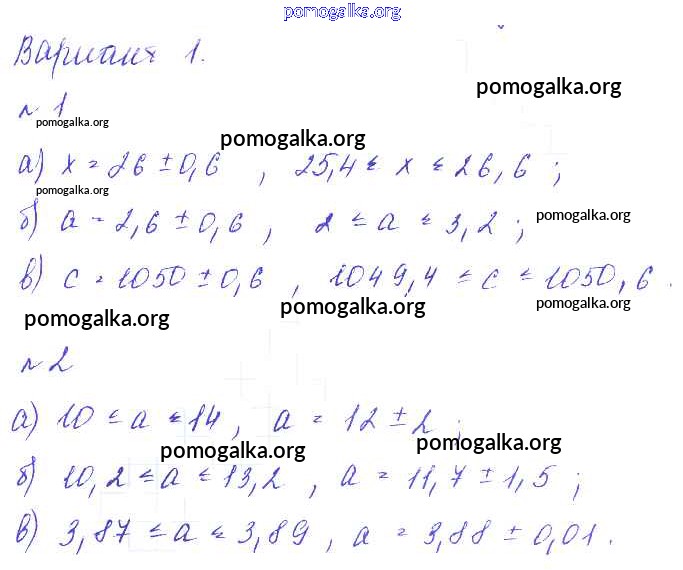 pomogalka.org
Вариант 1.
pomogalka.org
№ 1
pomogalka.org
pomogalka.org
а) x = 26 ± 0,6 , 25,4 ≤ x ≤ 26,6 ;
pomogalka.org
pomogalka.org
б) a = 2,6 ± 0,6 , 2 ≤ a ≤ 3,2 ;
в) c = 1050 ± 0,6 , 1049,4 ≤ c ≤ 1050,6.
pomogalka.org
pomogalka.org
№ 2
а) 10 ≤ a ≤ 14 , a = 12 ± 2 ;
pomogalka.org
pomogalka.org
б) 10,2 ≤ a ≤ 13,2 , a = 11,7 ± 1,5 ;
в) 3,87 ≤ a ≤ 3,89 , a = 3,88 ± 0,01.